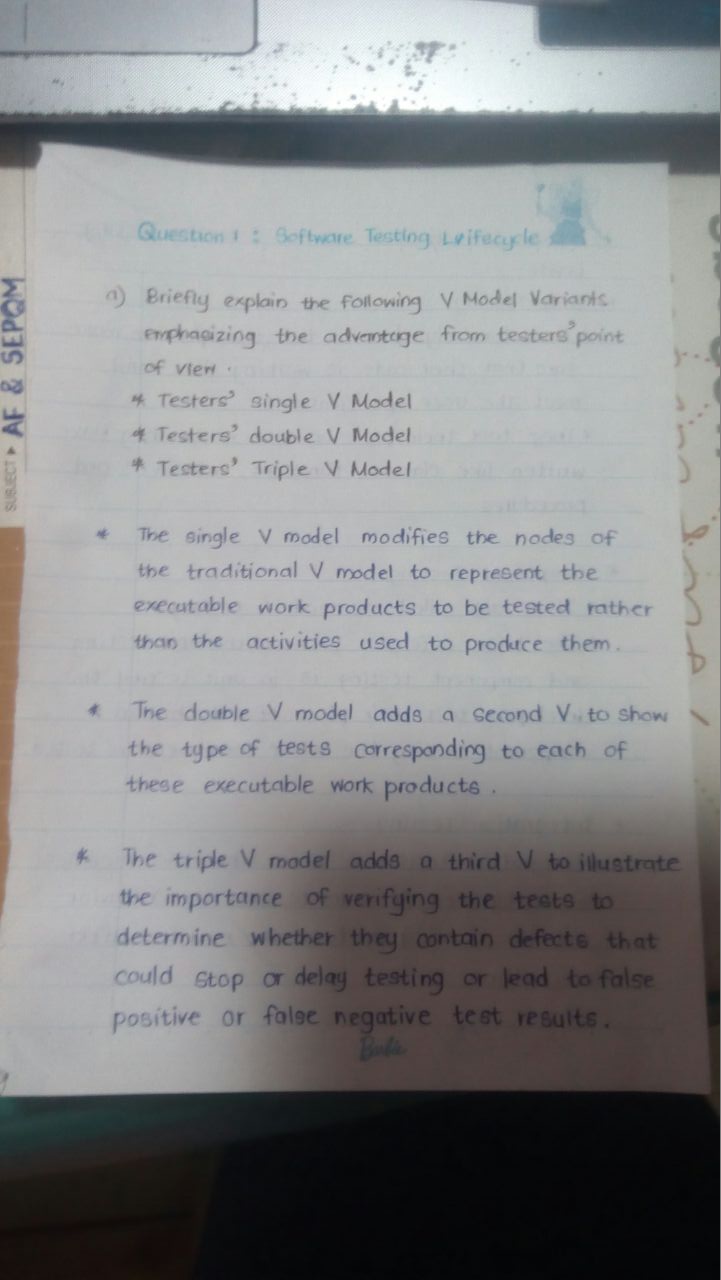 Question 1 : Software Testing Lifecycle
a) Briefly explain the following V Model Variants
emphasizing the advantage from testers' point
of view.
* Testers' single V Model
* Testers' double V Model
* Testers' Triple V Model
* The single V model modifies the nodes of
the traditional V model to represent the
executable work products to be tested rather
than the activities used to produce them.
* The double V model adds a second V to show
the type of tests corresponding to each of
these executable work products.
* The triple V model adds a third V to illustrate
the importance of verifying the tests to
determine whether they contain defects that
could stop or delay testing or lead to false
positive or false negative test results.
Barbie
SUBJECT ▸ AF & SEPQM